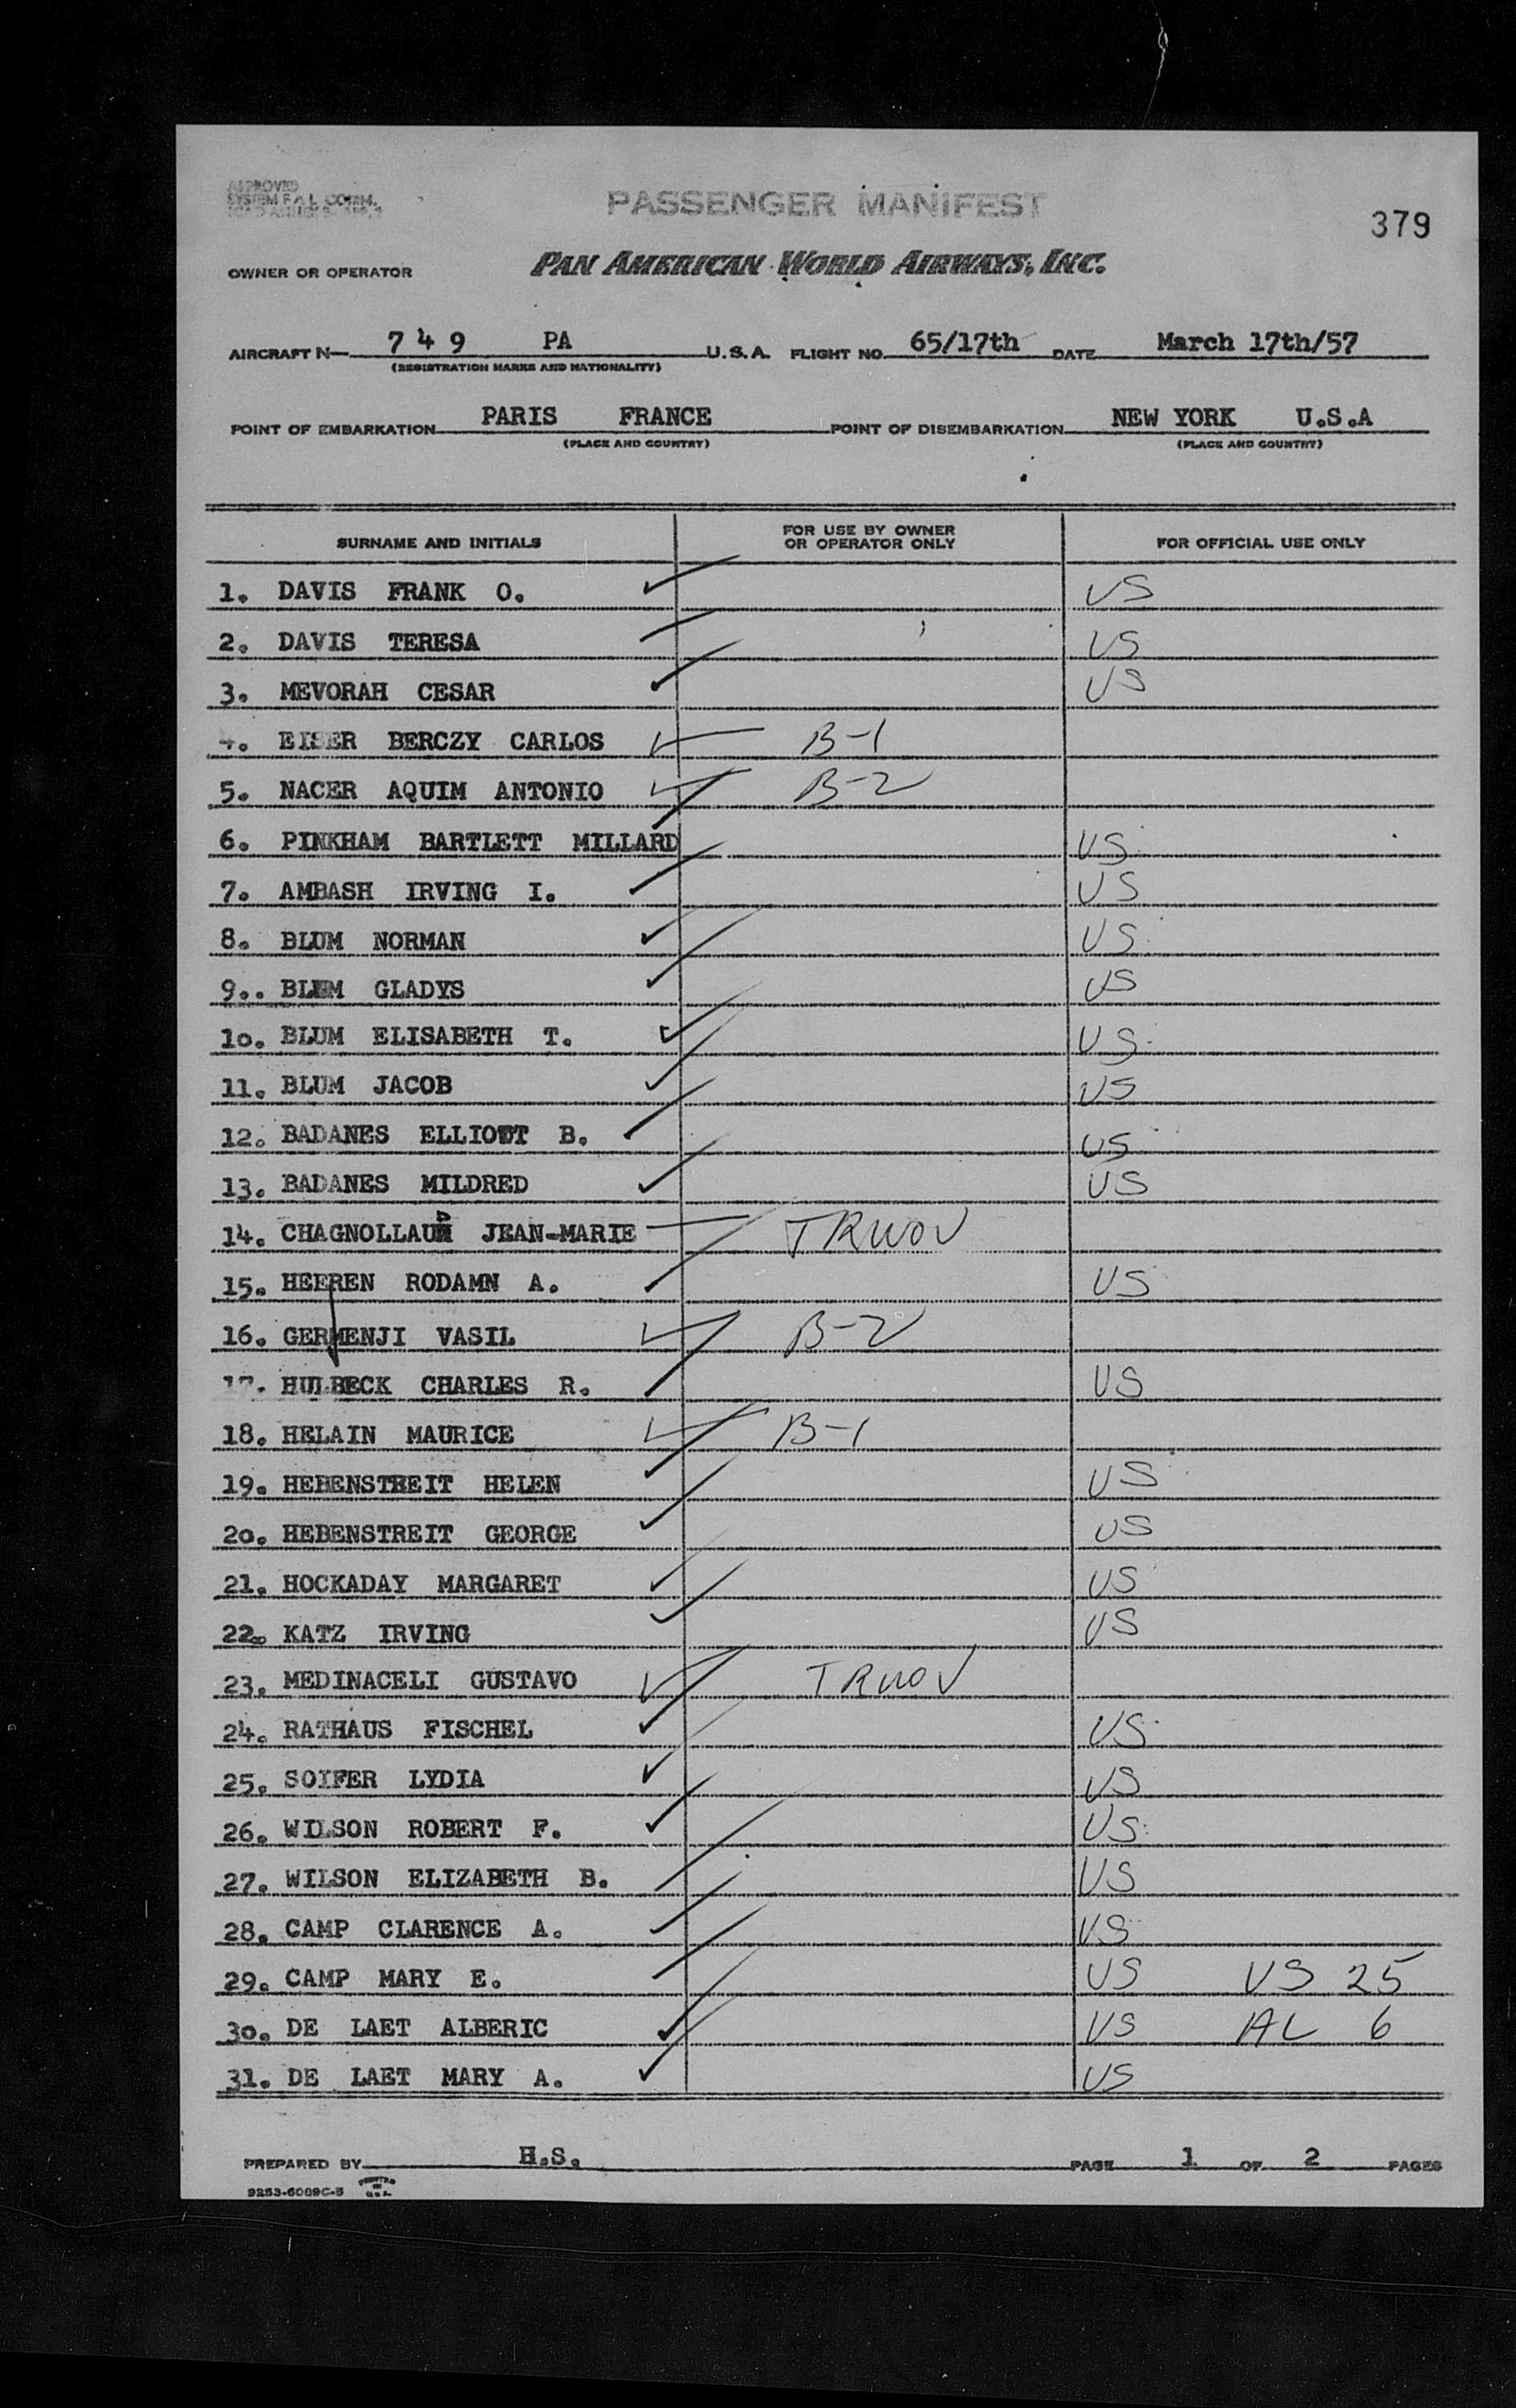 APPROVED
SYSTEM F.A.L. COMM.
PASSENGER MANIFEST
379
OWNER OR OPERATOR PAN AMERICAN WORLD AIRWAYS, INC.
AIRCRAFT N— 7 4 9 PA U.S.A. FLIGHT NO. 65/17th DATE March 17th/57
(REGISTRATION MARKS AND NATIONALITY)
POINT OF EMBARKATION PARIS FRANCE POINT OF DISEMBARKATION NEW YORK U.S.A
(PLACE AND COUNTRY) (PLACE AND COUNTRY)
SURNAME AND INITIALS FOR USE BY OWNER OR OPERATOR ONLY FOR OFFICIAL USE ONLY
1. DAVIS FRANK O. US
2. DAVIS TERESA US
3. MEVORAH CESAR US
4. EISER BERCZY CARLOS B-1
5. NACER AQUIM ANTONIO B-2
6. PINKHAM BARTLETT MILLARD US
7. AMBASH IRVING I. US
8. BLUM NORMAN US
9.. BLUM GLADYS US
10. BLUM ELISABETH T. US
11. BLUM JACOB US
12. BADANES ELLIOTT B. US
13. BADANES MILDRED US
14. CHAGNOLLAUD JEAN-MARIE TRWOV
15. HEEREN RODAMN A. US
16. GERMENJI VASIL B-2
17. HULBECK CHARLES R. US
18. HELAIN MAURICE B-1
19. HEBENSTREIT HELEN US
20. HEBENSTREIT GEORGE US
21. HOCKADAY MARGARET US
22. KATZ IRVING US
23. MEDINACELI GUSTAVO TRWOV
24. RATHAUS FISCHEL US
25. SOIFER LYDIA US
26. WILSON ROBERT F. US
27. WILSON ELIZABETH B. US
28. CAMP CLARENCE A. US
29. CAMP MARY E. US US 25
30. DE LAET ALBERIC US AL 6
31. DE LAET MARY A. US
PREPARED BY H.S. PAGE 1 OF 2 PAGES
9253-6089C-5 PRINTED IN U.S.A.